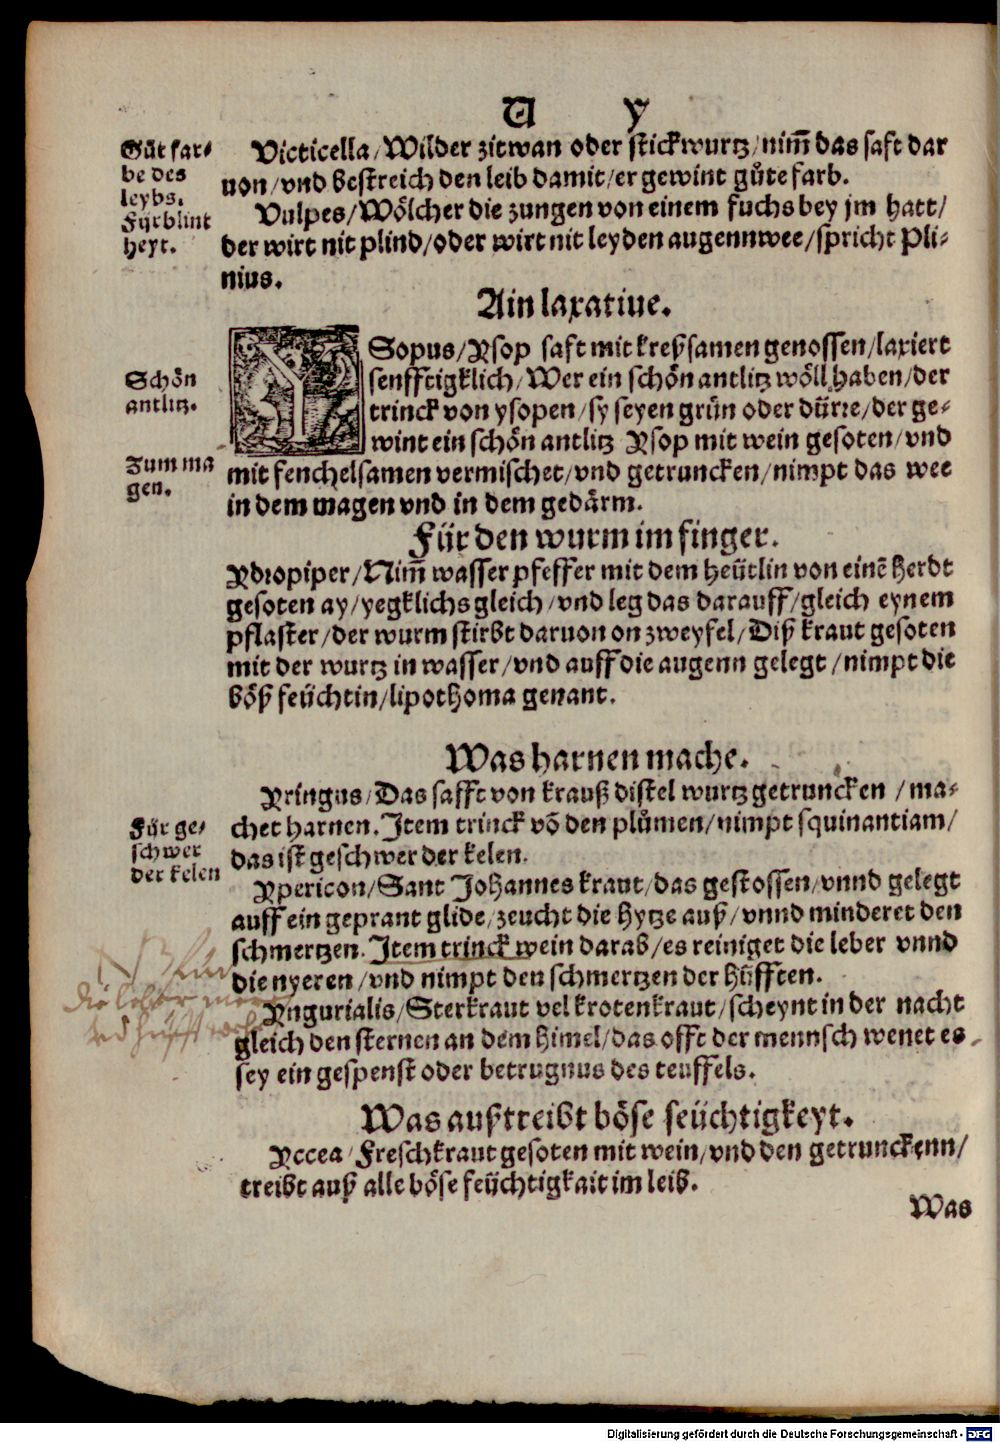 V y
Gůt far-
be des
leybs.
Victicella/Wilder zitwan oder stickwurtz/nim̄ das saft dar
uon/vnd bestreich den leib damit/er gewint gůte farb.
Fürblint
heyt.
Vulpes/Wölcher die zungen von einem fuchs bey jm hatt/
der wirt nit plind/oder wirt nit leyden augennwee/spricht Pli-
nius.
Ain laxatiue.
YSopus/Ysop saft mit kreßsamen genossen/laxiert
Schön
antlitz.
senfftigklich/Wer ein schön antlitz wöll haben/der
trinck von ysopen/sy seyen grün oder dürre/der ge-
wint ein schön antlitz Ysop mit wein gesoten/vnd
Zum ma
gen.
mit fenchelsamen vermischet/vnd getruncken/nimpt das wee
in dem magen vnd in dem gedärm.
Für den wurm im finger.
Ydropiper/Nim̄ wasser pfeffer mit dem heütlin von einē herdt
gesoten ay/yegklichs gleich/vnd leg das darauff/gleich eynem
pflaster/der wurm stirbt daruon on zweyfel/Diß kraut gesoten
mit der wurtz in wasser/vnd auff die augenn gelegt/nimpt die
böß feüchtin/lipothoma genant.
Was harnen mache.
Yringus/Das safft von krauß distel wurtz getruncken/ma-
Für ge-
schwer
der kelen
chet harnen. Item trinck vō den plůmen/nimpt squinantiam/
das ist geschwer der kelen.
Ypericon/Sant Johannes kraut/das gestossen/vnnd gelegt
auff ein geprant glide/zeucht die hytze auß/vnnd minderet den
schmertzen. Item trinck wein darab/es reiniget die leber vnnd
die nyeren/vnd nimpt den schmertzen der hüfften.
die leber
Yngurialis/Sterkraut vel krotenkraut/scheynt in der nacht
gleich den sternen an dem himel/das offt der mennsch wenet es
sey ein gespenst oder betrugnus des teuffels.
Was außtreibt böse feüchtigkeyt.
Yccea/Freschkraut gesoten mit wein/vnd den getrunckenn/
treibt auß alle böse feüchtigkait im leib.
Was
Digitalisierung gefördert durch die Deutsche Forschungsgemeinschaft - DFG